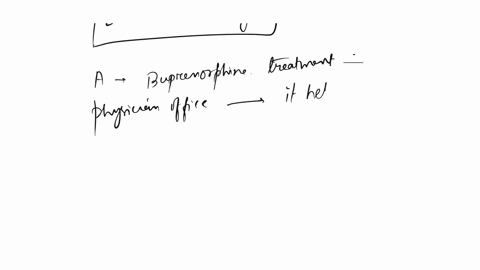 A → Buprenorphine treatment in
physician office → it hel